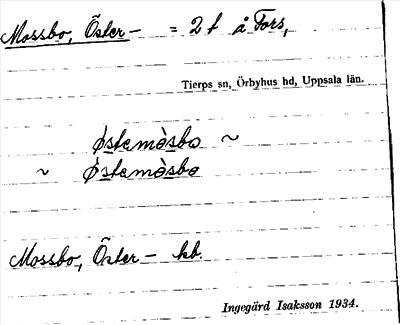 Mossbo, Öster – = 2 f å Fors,
Tierps sn, Örbyhus hd, Uppsala län.
østemòsbo ~
~ østemòsbo
Mossbo, Öster – kb.
Ingegärd Isaksson 1934.